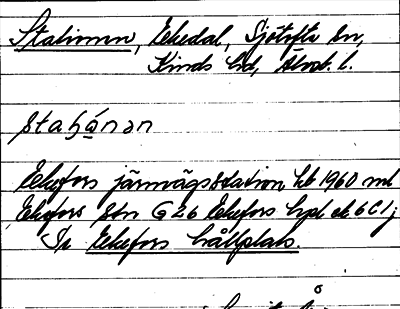 Stationen, Ekedal, Sjötofta sn,
Kinds hd, Älvsb. l.
stahánən
Ekefors järnvägsstation kbl 1960 ml
Ekefors stn G26 Ekefors hpl ek 6C1j
Se Ekefors hållplats.